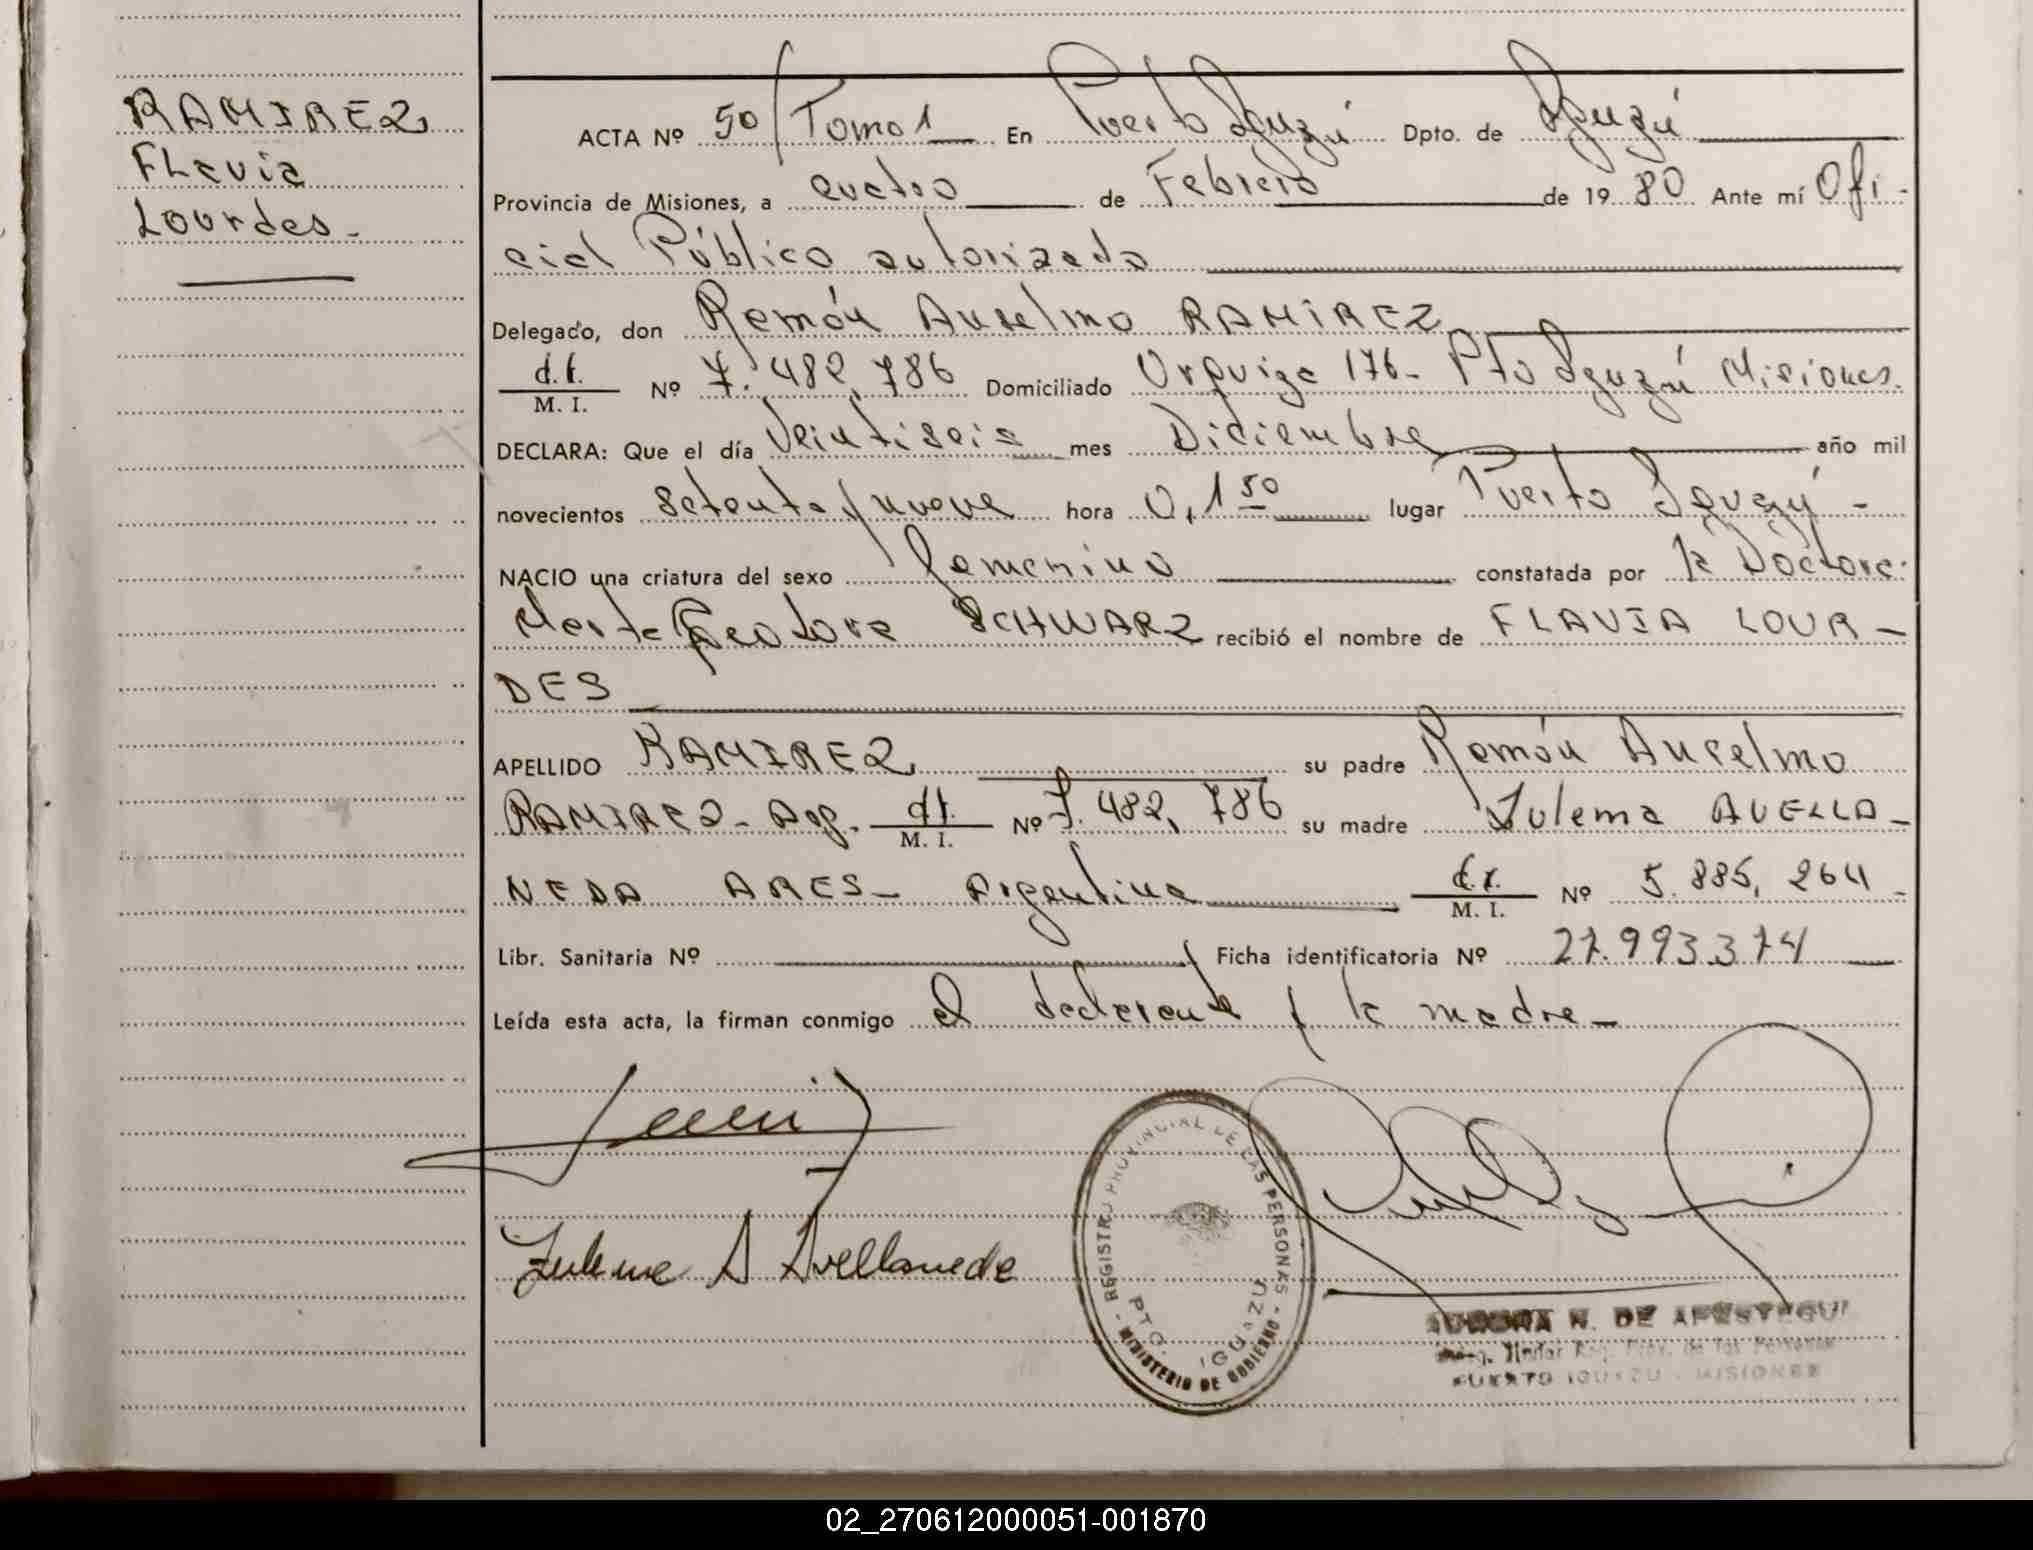 RAMIREZ
Flavia
Lourdes -
ACTA Nº 50/Tomo 1 En Puerto Iguazú Dpto. de Iguazú
Provincia de Misiones, a cuatro de Febrero de 1980 Ante mí Ofi-
cial Público autorizado
Delegado, don Ramón Anselmo RAMIREZ
d.i. M. I. Nº 7.482,786 Domiciliado Urquiza 176- Pto Iguazú Misiones.
DECLARA: Que el día Veintiseis mes Diciembre año mil
novecientos setenta y nueve hora 0,1 50 lugar Puerto Iguazú -
NACIO una criatura del sexo femenino constatada por la Doctora
Marta SCHWARZ recibió el nombre de FLAVIA LOUR-
DES
APELLIDO RAMIREZ su padre Ramón Anselmo
RAMIREZ - Arg. d.i. M. I. Nº 7.482,786 su madre Zulema AVELLA-
NEDA ARES - Argentina M. I. Nº 5.885,264 -
Libr. Sanitaria Nº Ficha identificatoria Nº 27.993.374
Leída esta acta, la firman conmigo el declarante y la madre -
Zulema A Avellaneda
REGISTRO PROVINCIAL DE LAS PERSONAS - MINISTERIO DE GOBIERNO -
PTO. IGUAZU
N. DE APESTEGUI
Reg. Prov. de las Personas
PUERTO IGUAZU - MISIONES
02_270612000051-001870